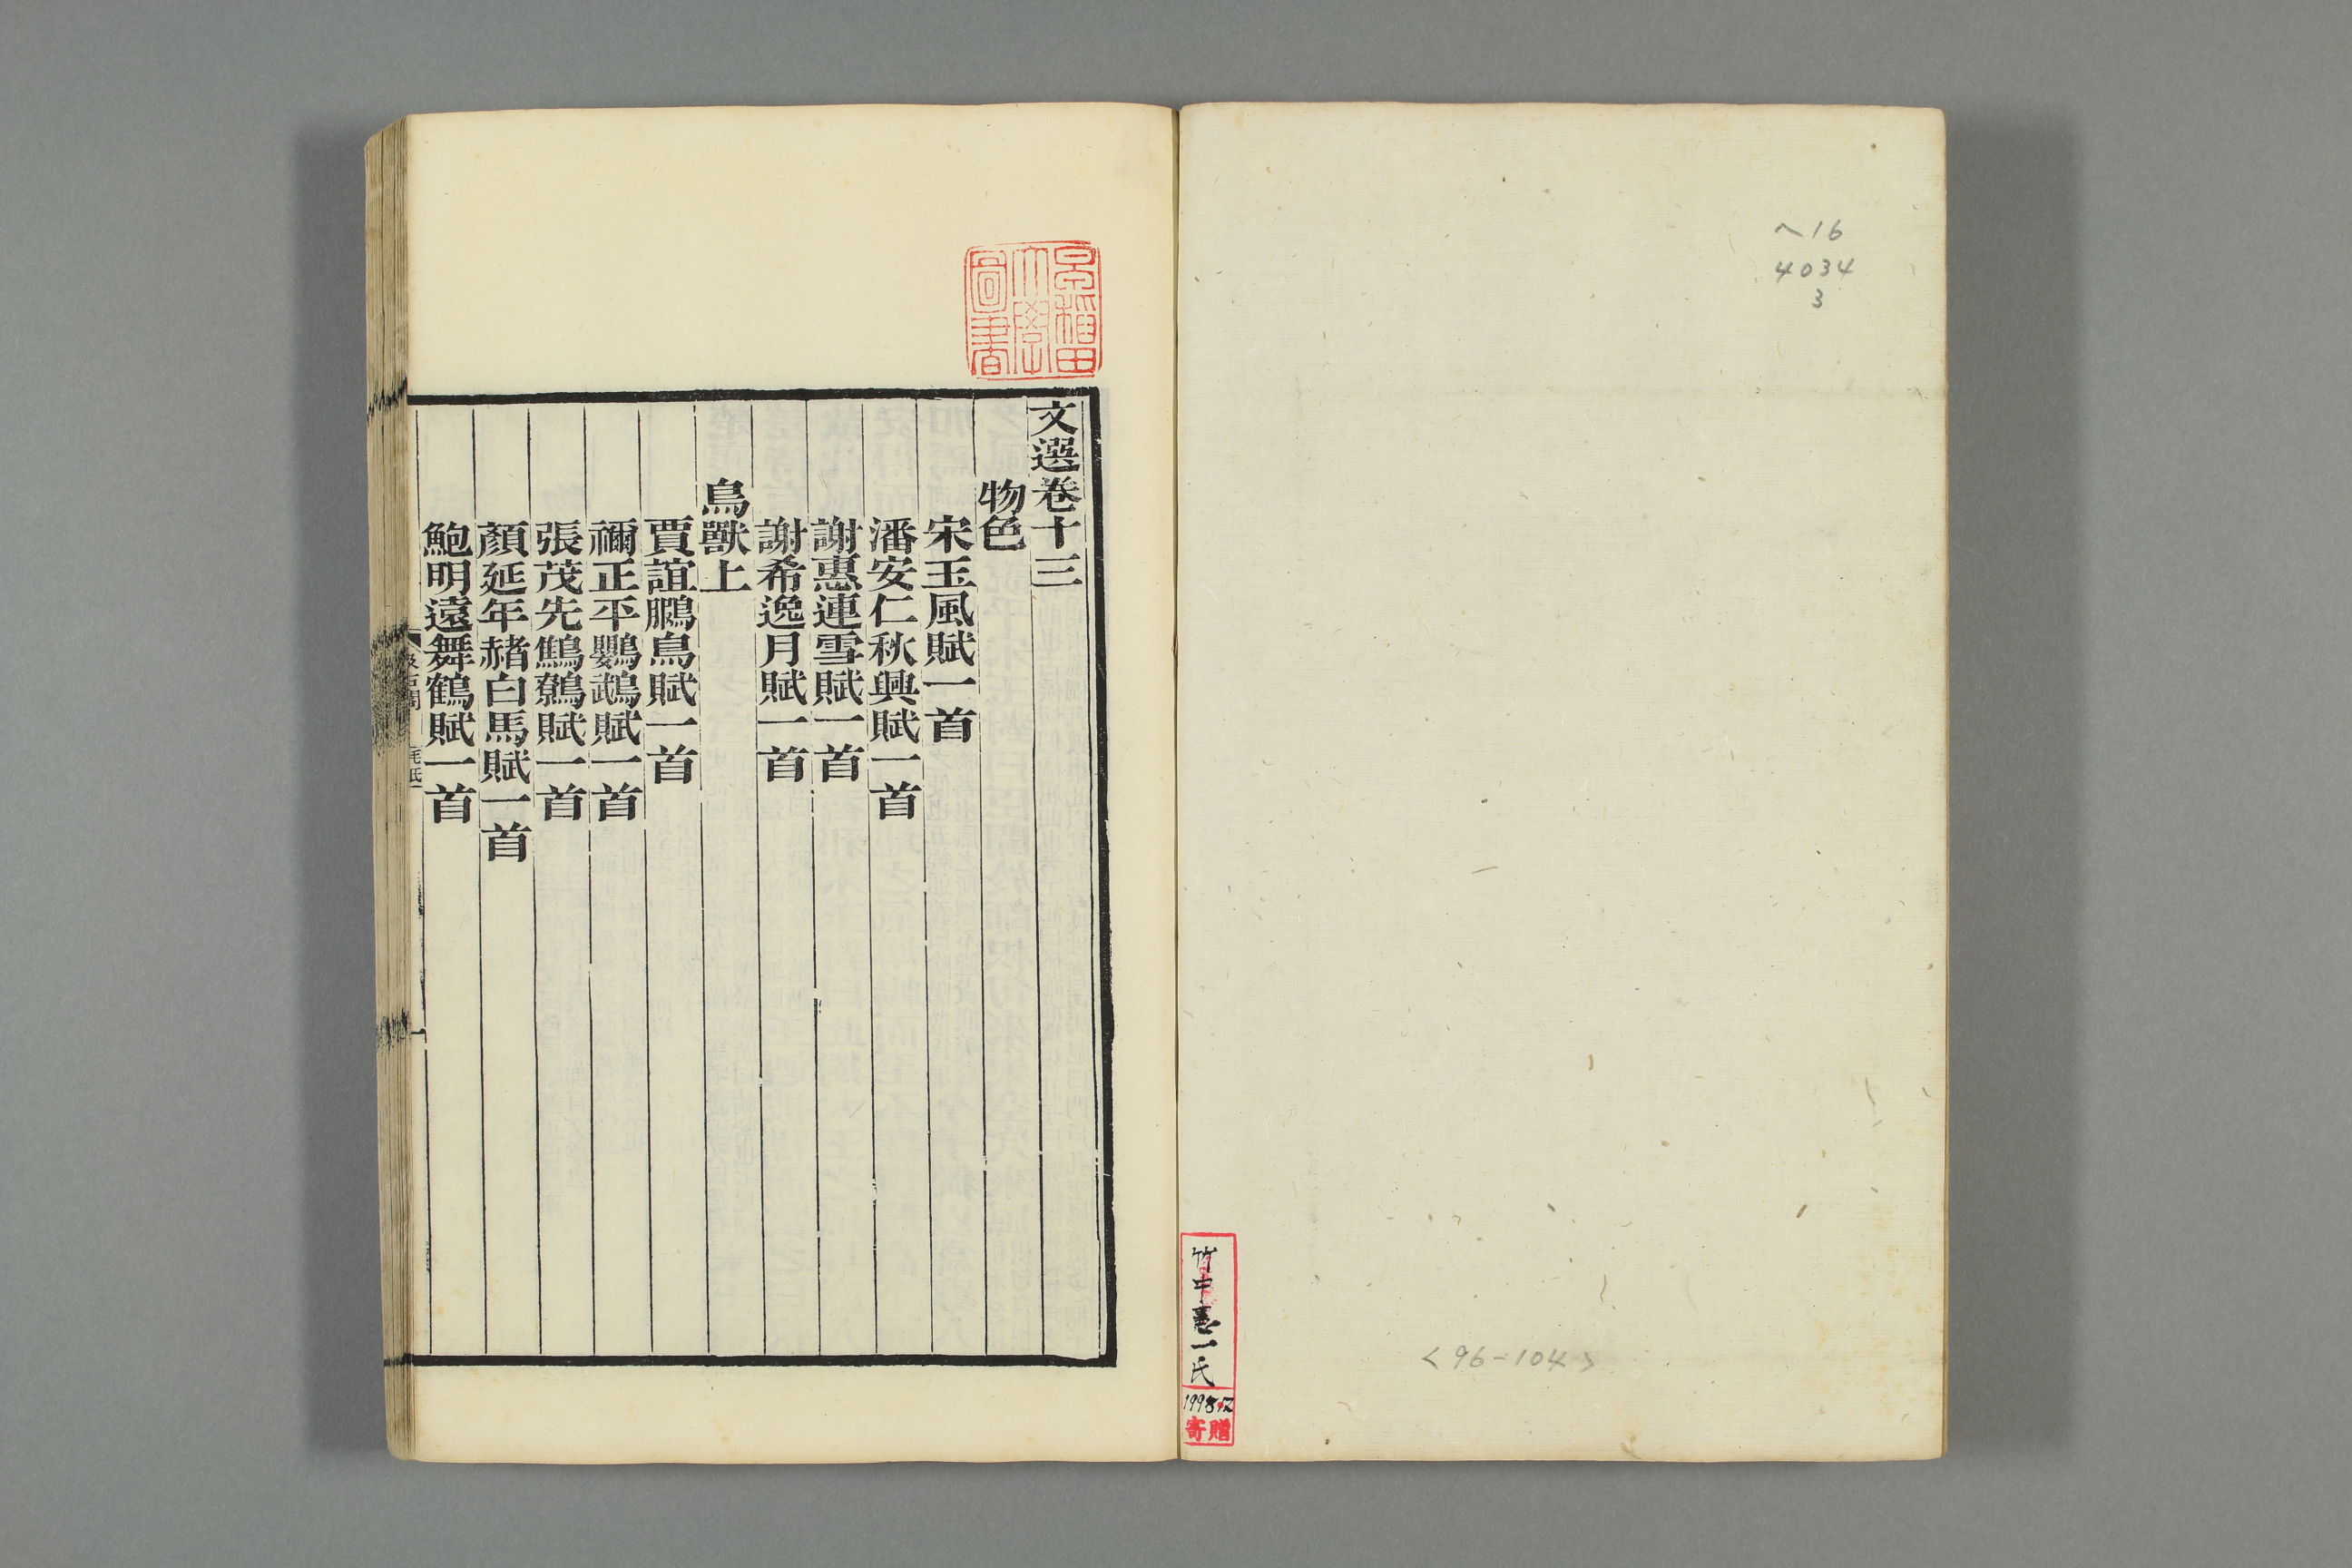 へ16
4034
3
<96-104>
竹中憲一氏
寄贈
早稲田
大學
圖書
文選卷十三
物色
宋玉風賦一首
潘安仁秋興賦一首
謝惠連雪賦一首
謝希逸月賦一首
鳥獸上
賈誼鵩鳥賦一首
禰正平鸚鵡賦一首
張茂先鷦鷯賦一首
顏延年赭白馬賦一首
鮑明遠舞鶴賦一首